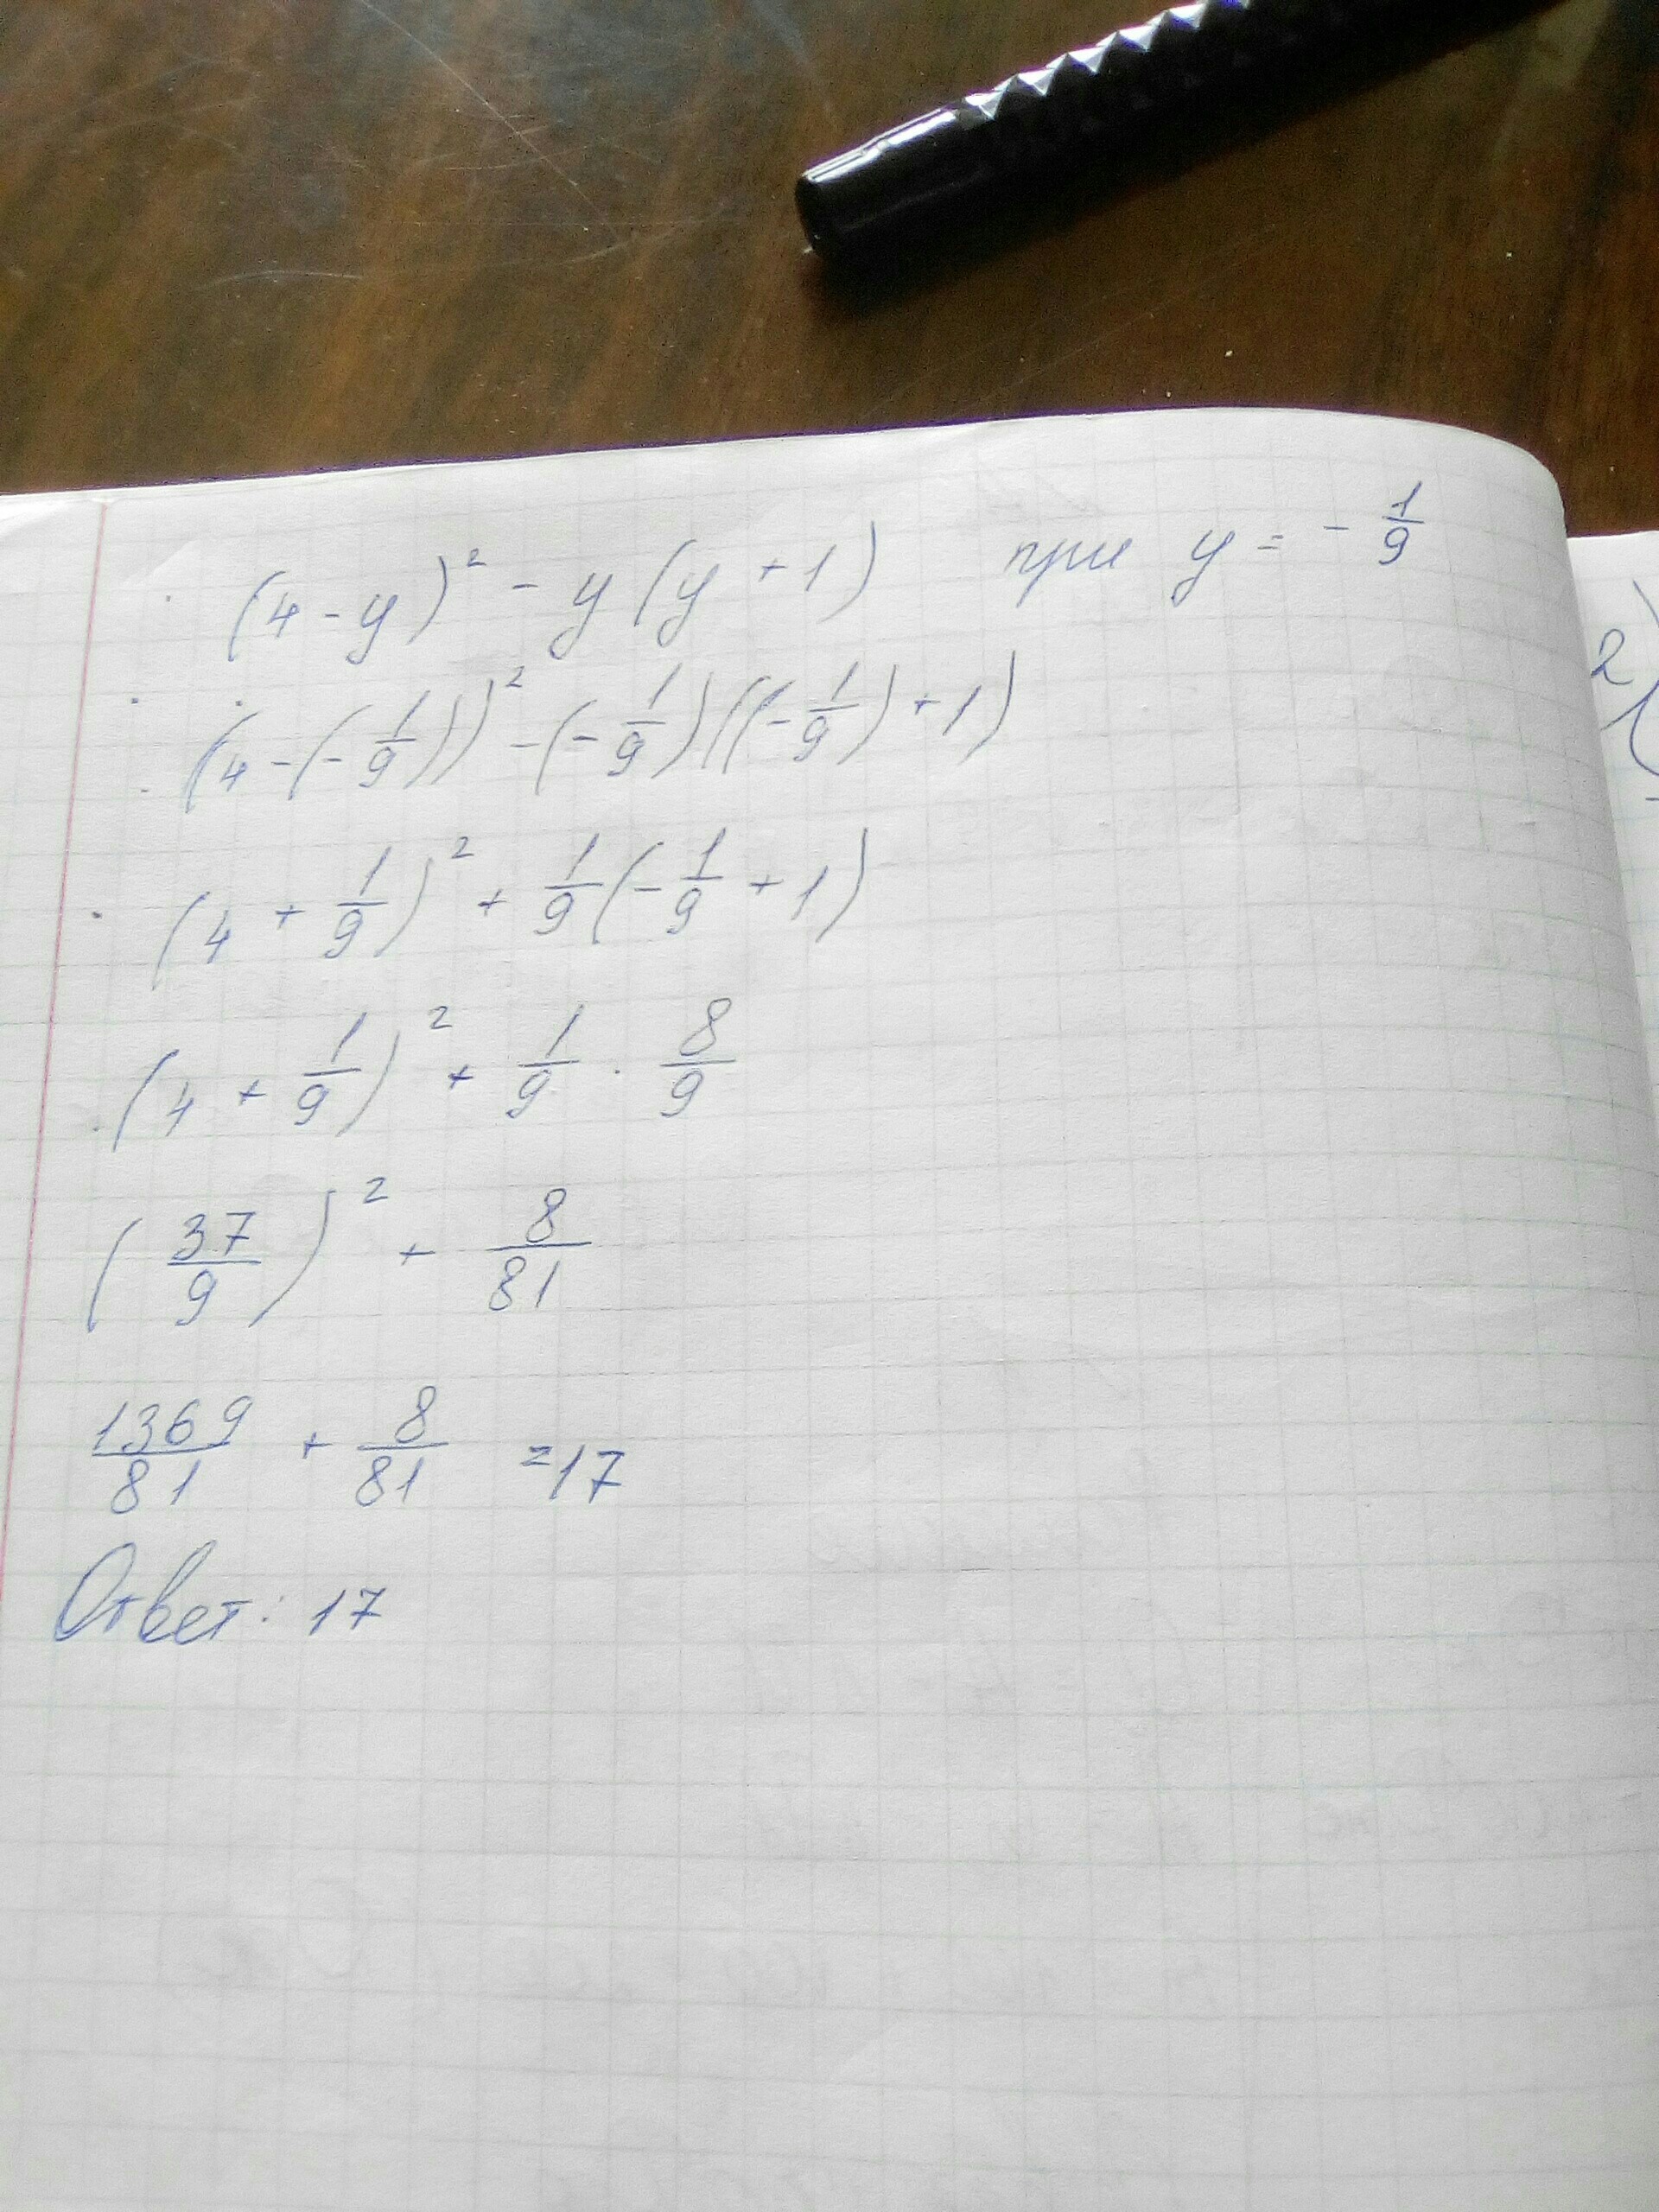 (4-y)² - y(y+1) при y = - 1/9
(4-(-1/9))² -(-1/9)((-1/9)+1)
(4 + 1/9)² + 1/9(-1/9 + 1)
(4 + 1/9)² + 1/9 · 8/9
(37/9)² + 8/81
1369/81 + 8/81 =17
Ответ: 17
2)